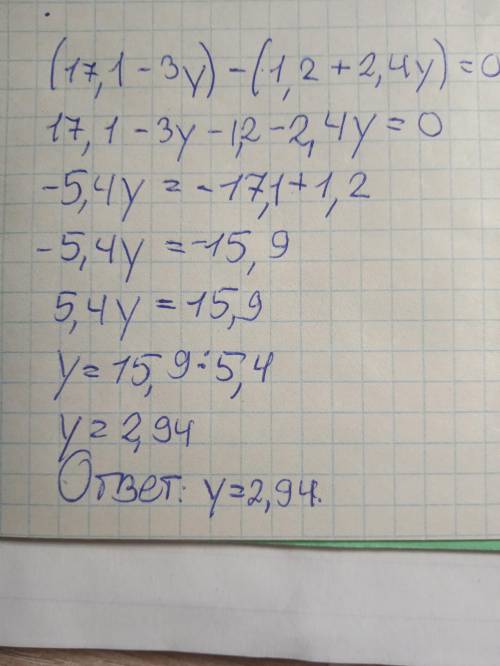 (17,1-3y)-(1,2+2,4y)=0
17,1-3y-1,2-2,4y=0
-5,4y=-17,1+1,2
-5,4y=-15,9
5,4y=15,9
y=15,9÷5,4
y=2,94
Ответ: y=2,94.